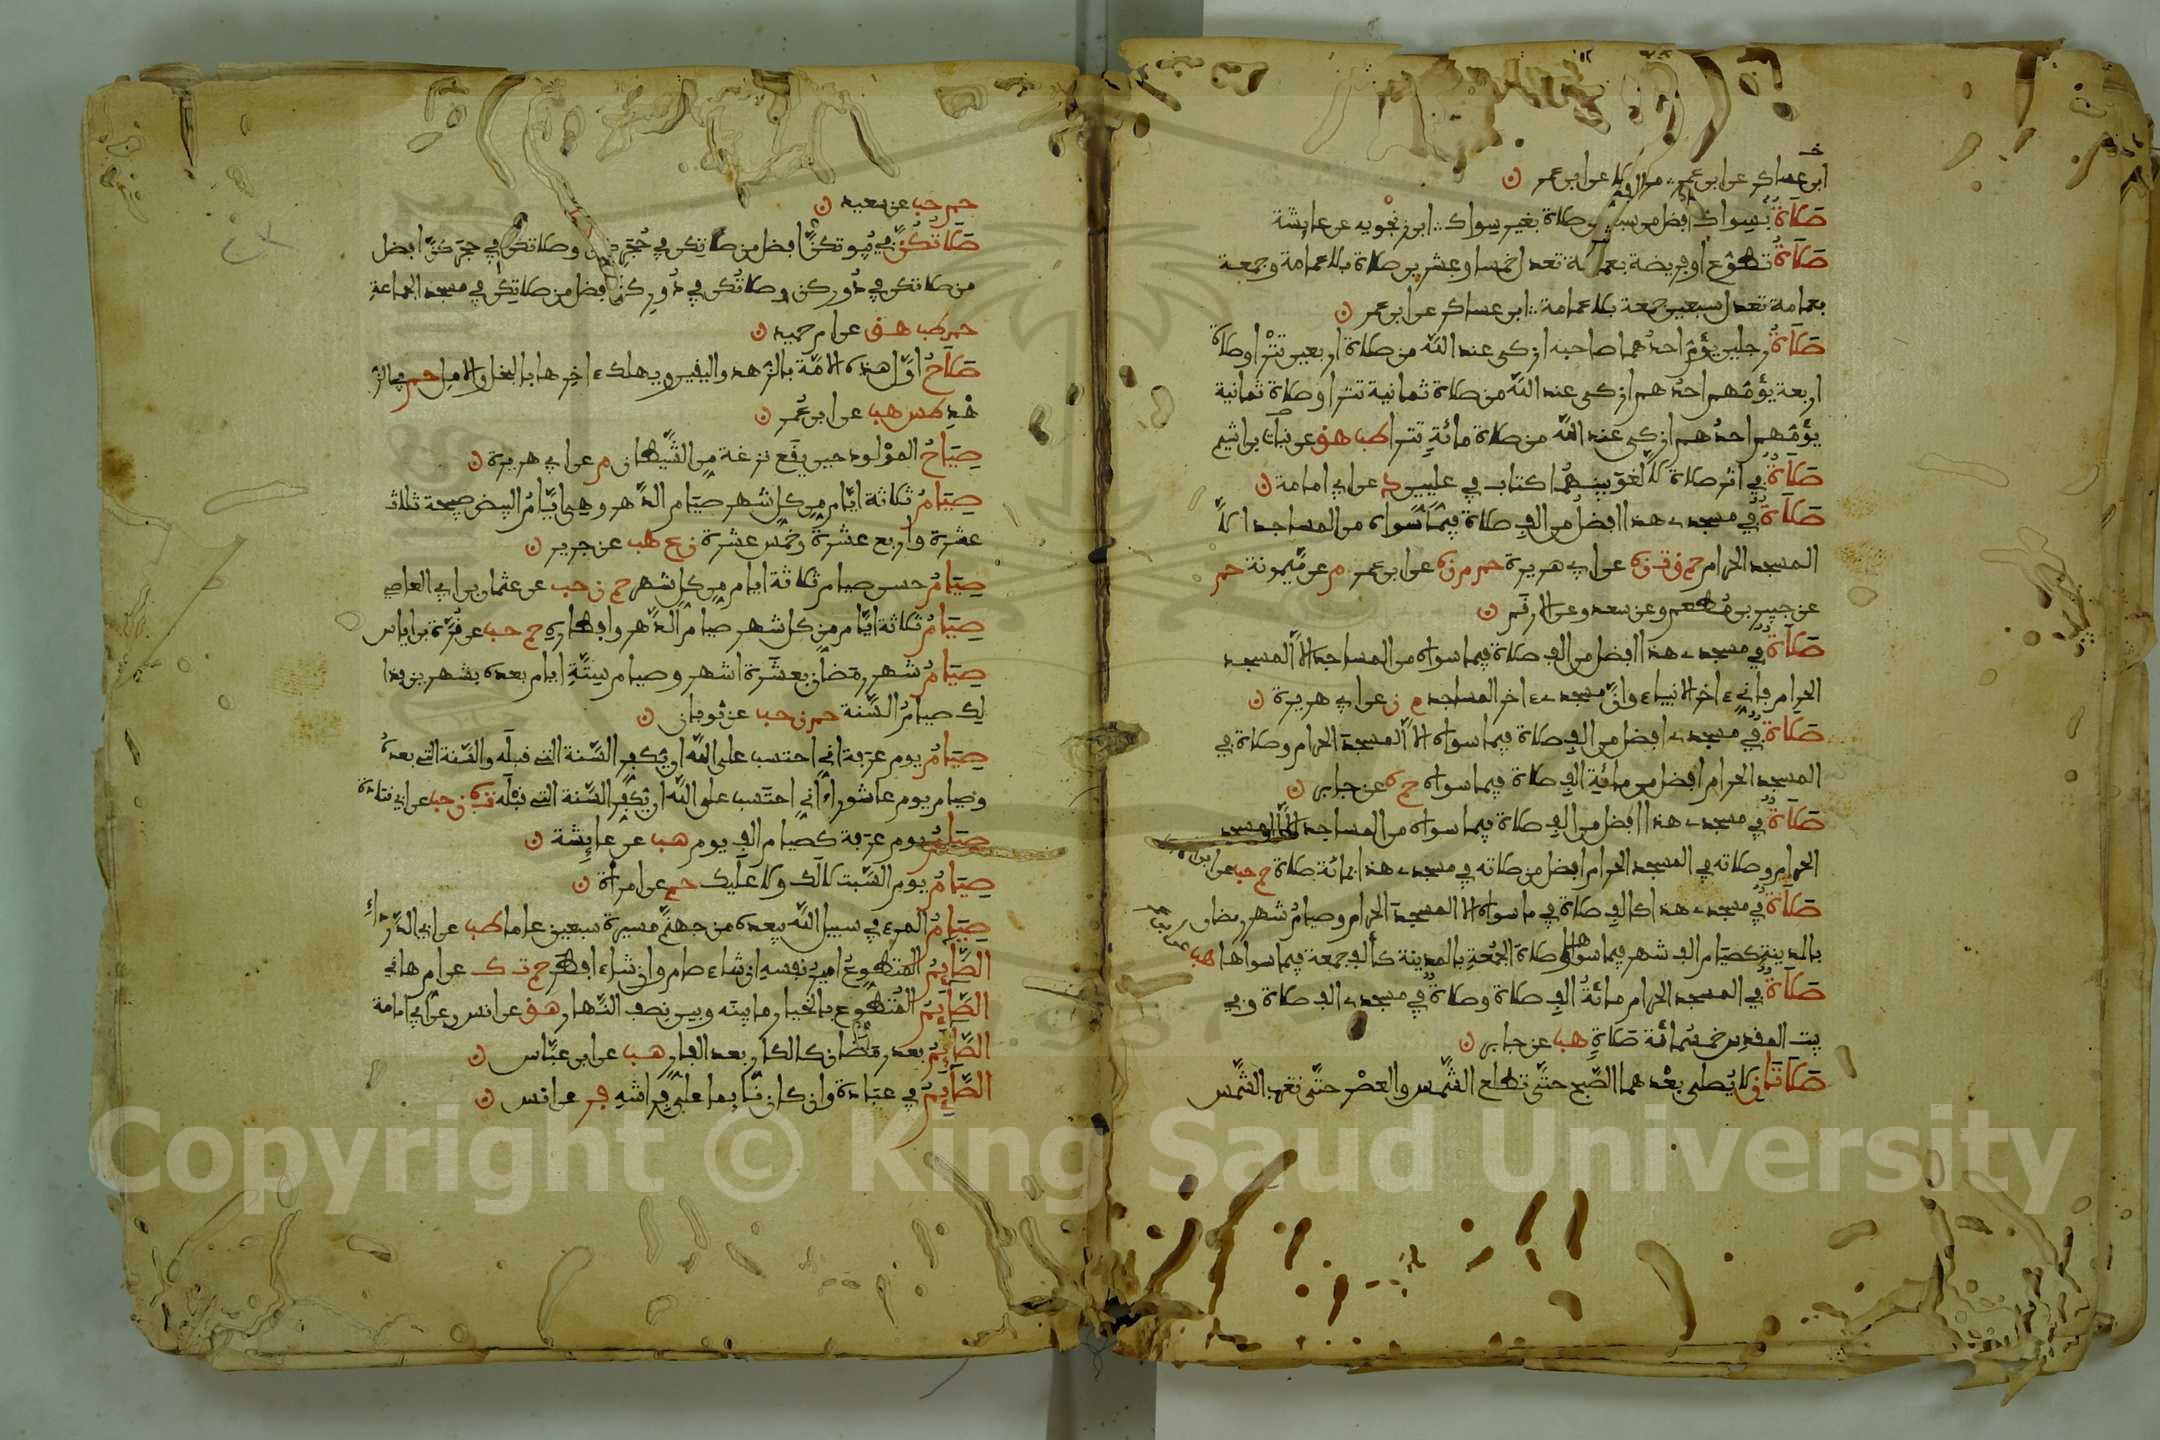 ابن عساكر عن ابن عمر
صَلَاةٌ بسواك افضل من سبعين صلاة بغير سواك ابن زنجويه عن عايشة
صَلَاةُ تطوع او فريضة بعمامة تعدل خمسا وعشرين صلاة بلا عمامة وجمعة
بعمامة تعدل سبعين جمعة بلا عمامة ابن عساكر عن ابن عمر ن
صَلَاةُ رجلين يؤم احدهما صاحبه ازكى عند الله من صلاة اربعين تترا وصلاة
اربعة يؤمهم احدهم ازكى عند الله من صلاة ثمانية تترا وصلاة ثمانية
يؤمهم احدهم ازكى عند الله من صلاة مائة تترا طب هق عن قباث بن اشيم
صَلَاةٌ في اثر صلاة لا لغو بينهما كتاب في عليين د عن ابي امامة ن
صَلَاةٌ في مسجدي هذا افضل من الف صلاة فيما سواه من المساجد الا
المسجد الحرام حم ق ت ن ه عن ابي هريرة حم م ن ه عن ابن عمر م عن ميمونة حم
عن جبير بن مطعم وعن سعد وعن الارقم ن
صَلَاةٌ في مسجدي هذا افضل من الف صلاة فيما سواه من المساجد الا المسجد
الحرام فاني ءاخر الانبياء وان مسجدي ءاخر المساجد م ن عن ابي هريرة ن
صَلَاةٌ في مسجدي افضل من الف صلاة فيما سواه الا المسجد الحرام وصلاة في
المسجد الحرام افضل من مائة الف صلاة فيما سواه حم ه عن جابر ن
صَلَاةٌ في مسجدي هذا افضل من الف صلاة فيما سواه من المساجد الا المسجد
الحرام وصلاته في المسجد الحرام افضل من صلاته في مسجدي هذا بمائة صلاة حم حب عن ابن
صَلَاةٌ في مسجدي هذا كالف صلاة في ما سواه الا المسجد الحرام وصيام شهر رمضان
بالمدينة كصيام الف شهر فيما سواها وصلاة الجمعة بالمدينة كألف جمعة فيما سواها هب
صَلَاةٌ في المسجد الحرام مائة الف صلاة وصلاة في مسجدي الف صلاة وفي
بيت المقدس خمسمائة صلاة هب عن جابر ن
صَلَاتَانِ لا يُصلى بعدهما الصبح حتى تطلع الشمس والعصر حتى تغرب الشمس
حم حب عن سعيد ن
صَلَاتُكُنَّ في بيوتكن افضل من صلاتكن في حجركن وصلاتكن في حجركن افضل
من صلاتكن في دوركن وصلاتكن في دوركن افضل من صلاتكن في مسجد الجماعة
حم طب هق عن ام حميد ن
صَلَاحُ اول هذه الامة بالزهد واليقين ويهلك ءاخرها بالبخل والامل حم في الز
هد طس هب عن ابن عمر ن
صِيَاحُ المولود حين يقع نزغة من الشيطان م عن ابي هريرة ن
صِيَامُ ثلاثة ايام من كل شهر صيام الدهر وهي ايام البيض صبيحة ثلاث
عشرة واربع عشرة وخمس عشرة ن ع طب عن جرير ن
صِيَامُ حسن صيام ثلاثة ايام من كل شهر حم ن حب عن عثمان بن ابي العاص
صِيَامُ ثلاثة ايام من كل شهر صيام الدهر وافطاره حم حب عن قرة بن اياس
صِيَامُ شهر رمضان بعشرة اشهر وصيام ستة ايام بعده بشهرين فذا
لك صيام السنة حم ن حب عن ثوبان ن
صِيَامُ يوم عرفة اني احتسب على الله ان يكفر السنة التي قبله والسنة التي بعده
وصيام يوم عاشوراء اني احتسب على الله ان يكفر السنة التي قبله ت ه ن حب عن ابي قتادة
صِيَامُ يوم عرفة كصيام الف يوم هب عن عايشة ن
صِيَامُ يوم السبت لا لك ولا عليك حم عن امرأة ن
صِيَامُ المرء في سبيل الله يبعده من جهنم مسيرة سبعين عاما طب عن ابي الدرداء
الصَّائِمُ المتطوع امير نفسه ان شاء صام وان شاء افطر حم ت ك عن ام هاني
الصَّائِمُ المتطوع بالخيار ما بينه وبين نصف النهار هق عن انس وعن ابي امامة
الصَّائِمُ بعد رمضان كالكار بعد الفار هب عن ابن عباس ن
الصَّائِمُ في عبادة وان كان نائما على فراشه فر عن انس ن
Copyright © King Saud University